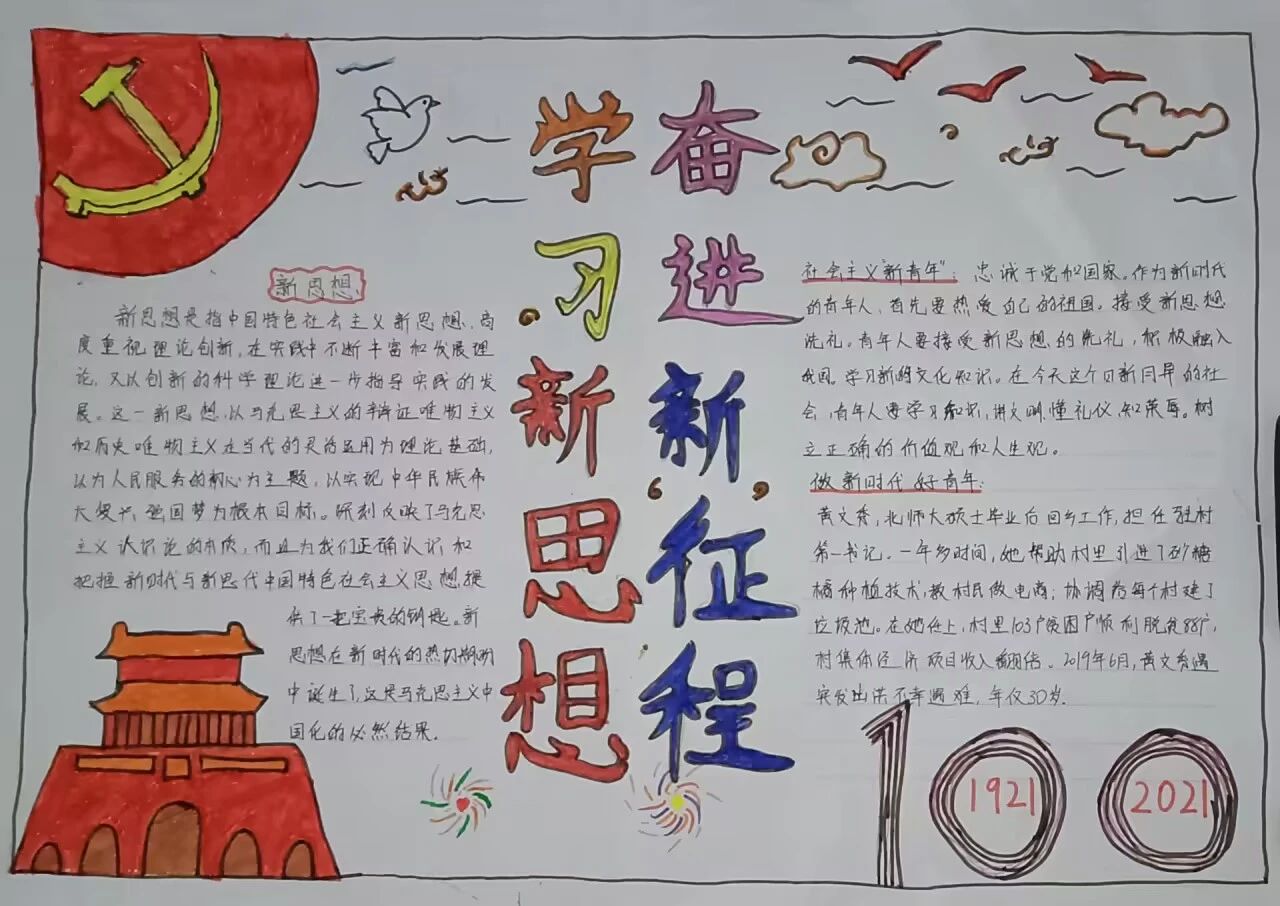 学习新思想
奋进新征程
新思想
新思想是指中国特色社会主义新思想,高
度重视理论创新,在实践中不断丰富和发展理
论,又以创新的科学理论进一步指导实践的发
展。这一新思想,以马克思主义的辩证唯物主义
和历史唯物主义在当代的灵活运用为理论基础,
以为人民服务的初心为主题,以实现中华民族伟
大复兴,强国梦为根本目标。深刻反映了马克思
主义认识论的本质,而且为我们正确认识和
把握新时代与新思代中国特色社会主义思想提
供了一把宝贵的钥匙。新
思想在新时代的热切期盼
中诞生了,这是马克思主义中
国化的必然结果.
社会主义"新青年":忠诚于党和国家。作为新时代
的青年人,首先要热爱自己的祖国。接受新思想
洗礼。青年人要接受新思想的洗礼,积极融入
我国。学习新的文化知识。在今天这个日新月异的社
会,青年人要学习知识,讲文明,懂礼仪,知荣辱。树
立正确的价值观和人生观。
做新时代好青年:
黄文秀,北师大硕士毕业后回乡工作,担任驻村
第一书记。一年多时间,她帮助村里引进了砂糖
橘种植技术,教村民做电商;协调为每个村建了
垃圾池。在她任上,村里103户贫困户顺利脱贫88户,
村集体经济项目收入翻倍。2019年6月,黄文秀遇
突发山洪不幸遇难,年仅30岁.
100
1921
2021